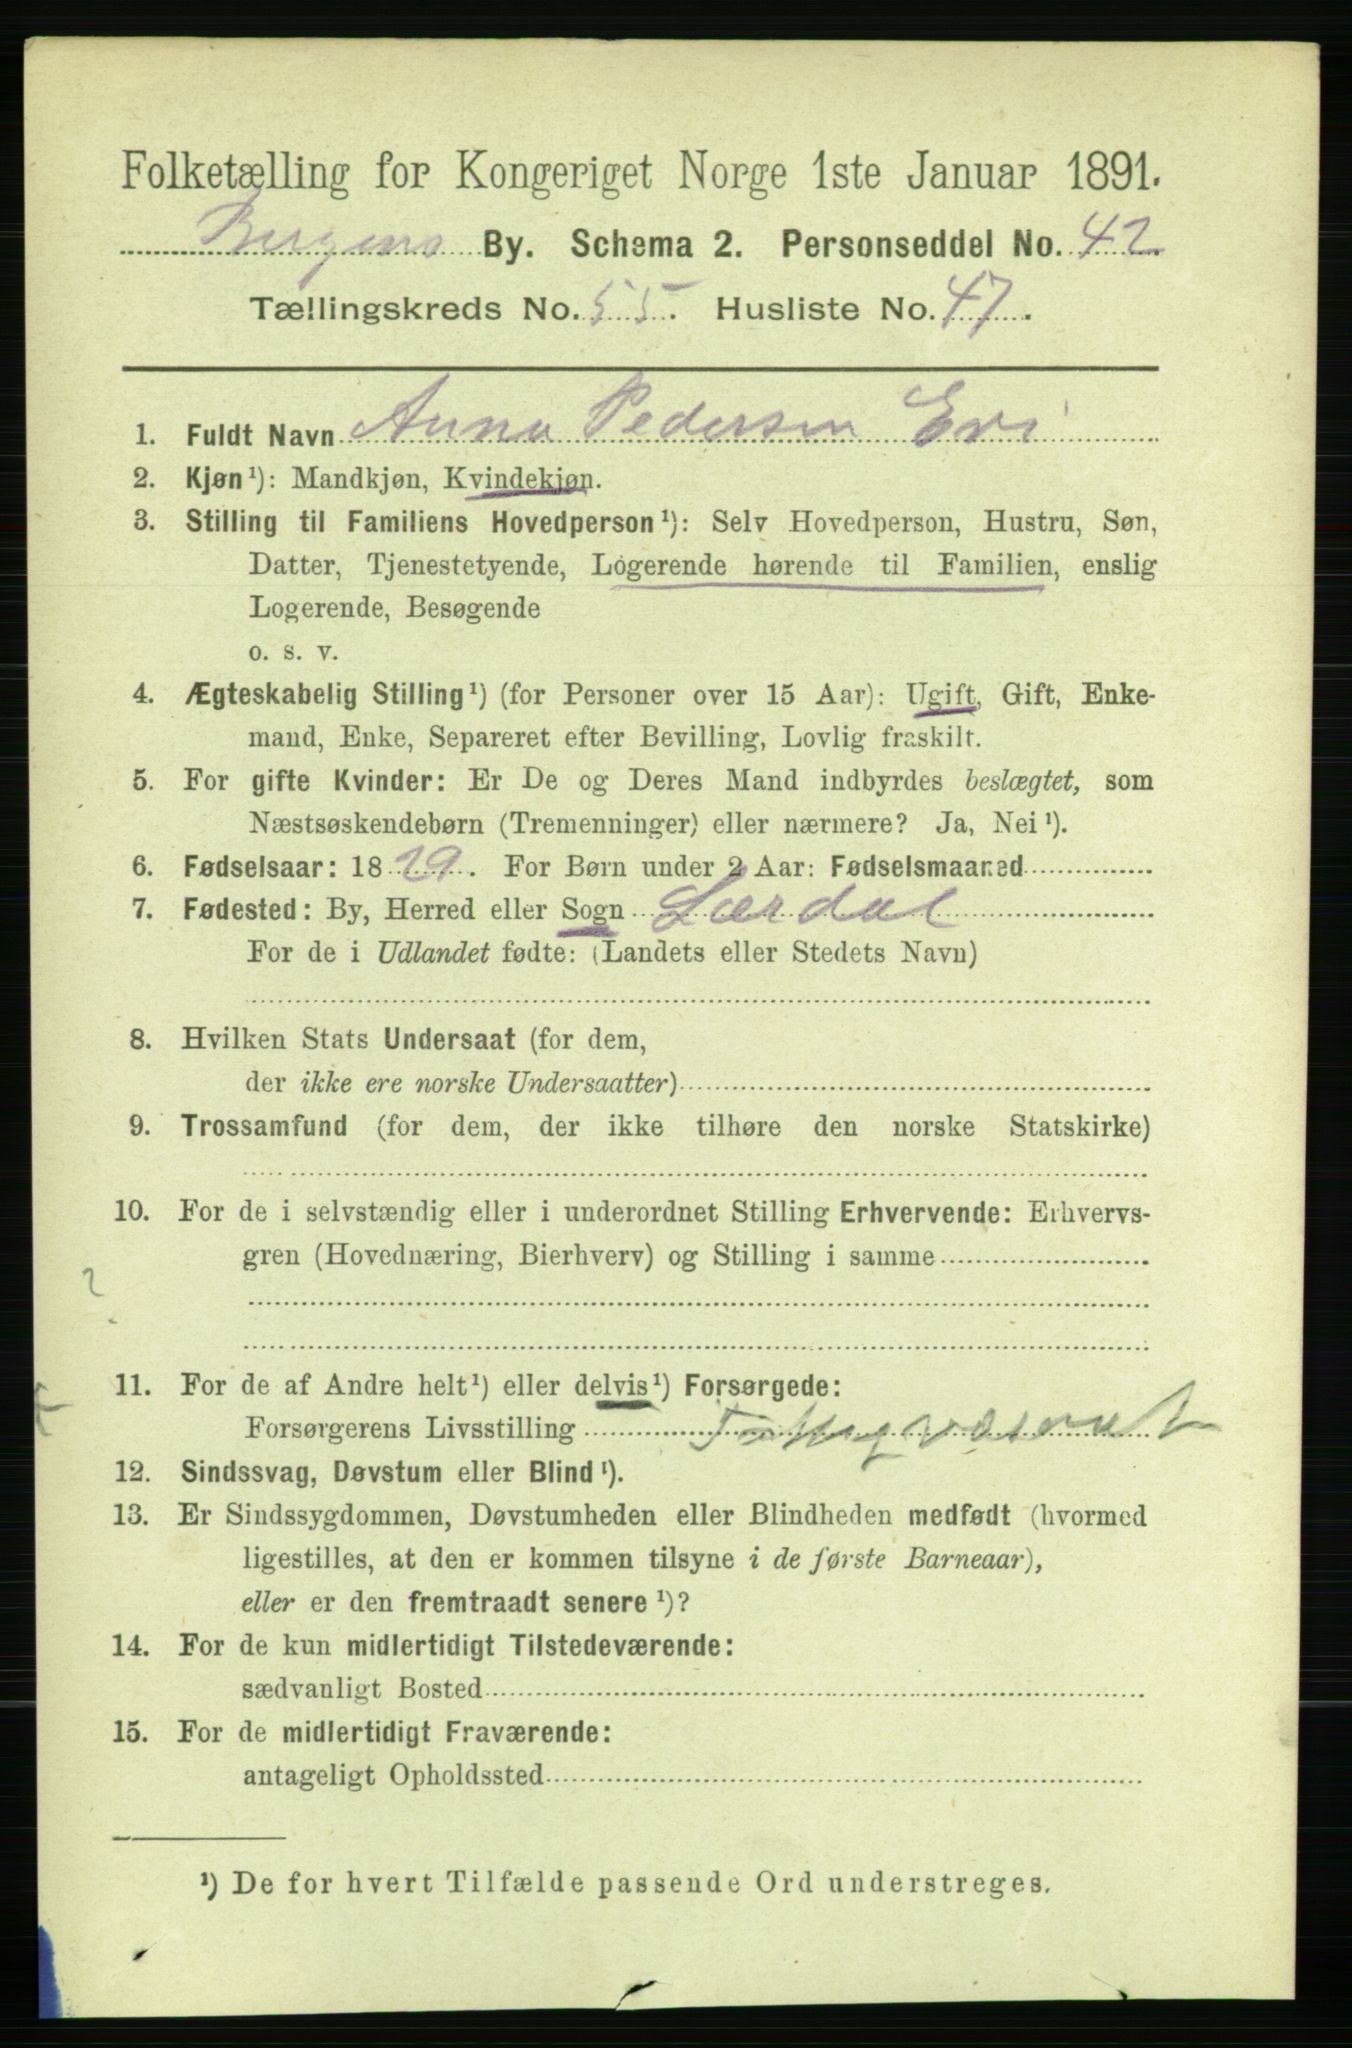 Folketælling for Kongeriget Norge 1ste Januar 1891.
Bergens By. Schema 2. Personseddel No. 42.
Tællingskreds No. 55. Husliste No. 47.
1. Fuldt Navn Anna Pedersen Eri
2. Kjøn¹): Mandkjøn, Kvindekjøn.
3. Stilling til Familiens Hovedperson¹): Selv Hovedperson, Hustru, Søn,
Datter, Tjenestetyende, Logerende hørende til Familien, enslig
Logerende, Besøgende
o. s. v.
4. Ægteskabelig Stilling¹) (for Personer over 15 Aar): Ugift, Gift, Enke-
mand, Enke, Separeret efter Bevilling, Lovlig fraskilt.
5. For gifte Kvinder: Er De og Deres Mand indbyrdes beslægtet, som
Næstsøskendebørn (Tremenninger) eller nærmere? Ja, Nei¹).
6. Fødselsaar: 1829. For Børn under 2 Aar: Fødselsmaaned
7. Fødested: By, Herred eller Sogn Lærdal
For de i Udlandet fødte: (Landets eller Stedets Navn)
8. Hvilken Stats Undersaat (for dem,
der ikke ere norske Undersaatter)
9. Trossamfund (for dem, der ikke tilhøre den norske Statskirke)
10. For de i selvstændig eller i underordnet Stilling Erhvervende: Erhvervs-
gren (Hovednæring, Bierhverv) og Stilling i samme
?
11. For de af Andre helt¹) eller delvis¹) Forsørgede:
Forsørgerens Livsstilling Fattigvæsenet
12. Sindssvag, Døvstum eller Blind¹).
13. Er Sindssygdommen, Døvstumheden eller Blindheden medfødt (hvormed
ligestilles, at den er kommen tilsyne i de første Barneaar),
eller er den fremtraadt senere¹)?
14. For de kun midlertidigt Tilstedeværende:
sædvanligt Bosted
15. For de midlertidigt Fraværende:
antageligt Opholdssted
¹) De for hvert Tilfælde passende Ord understreges.